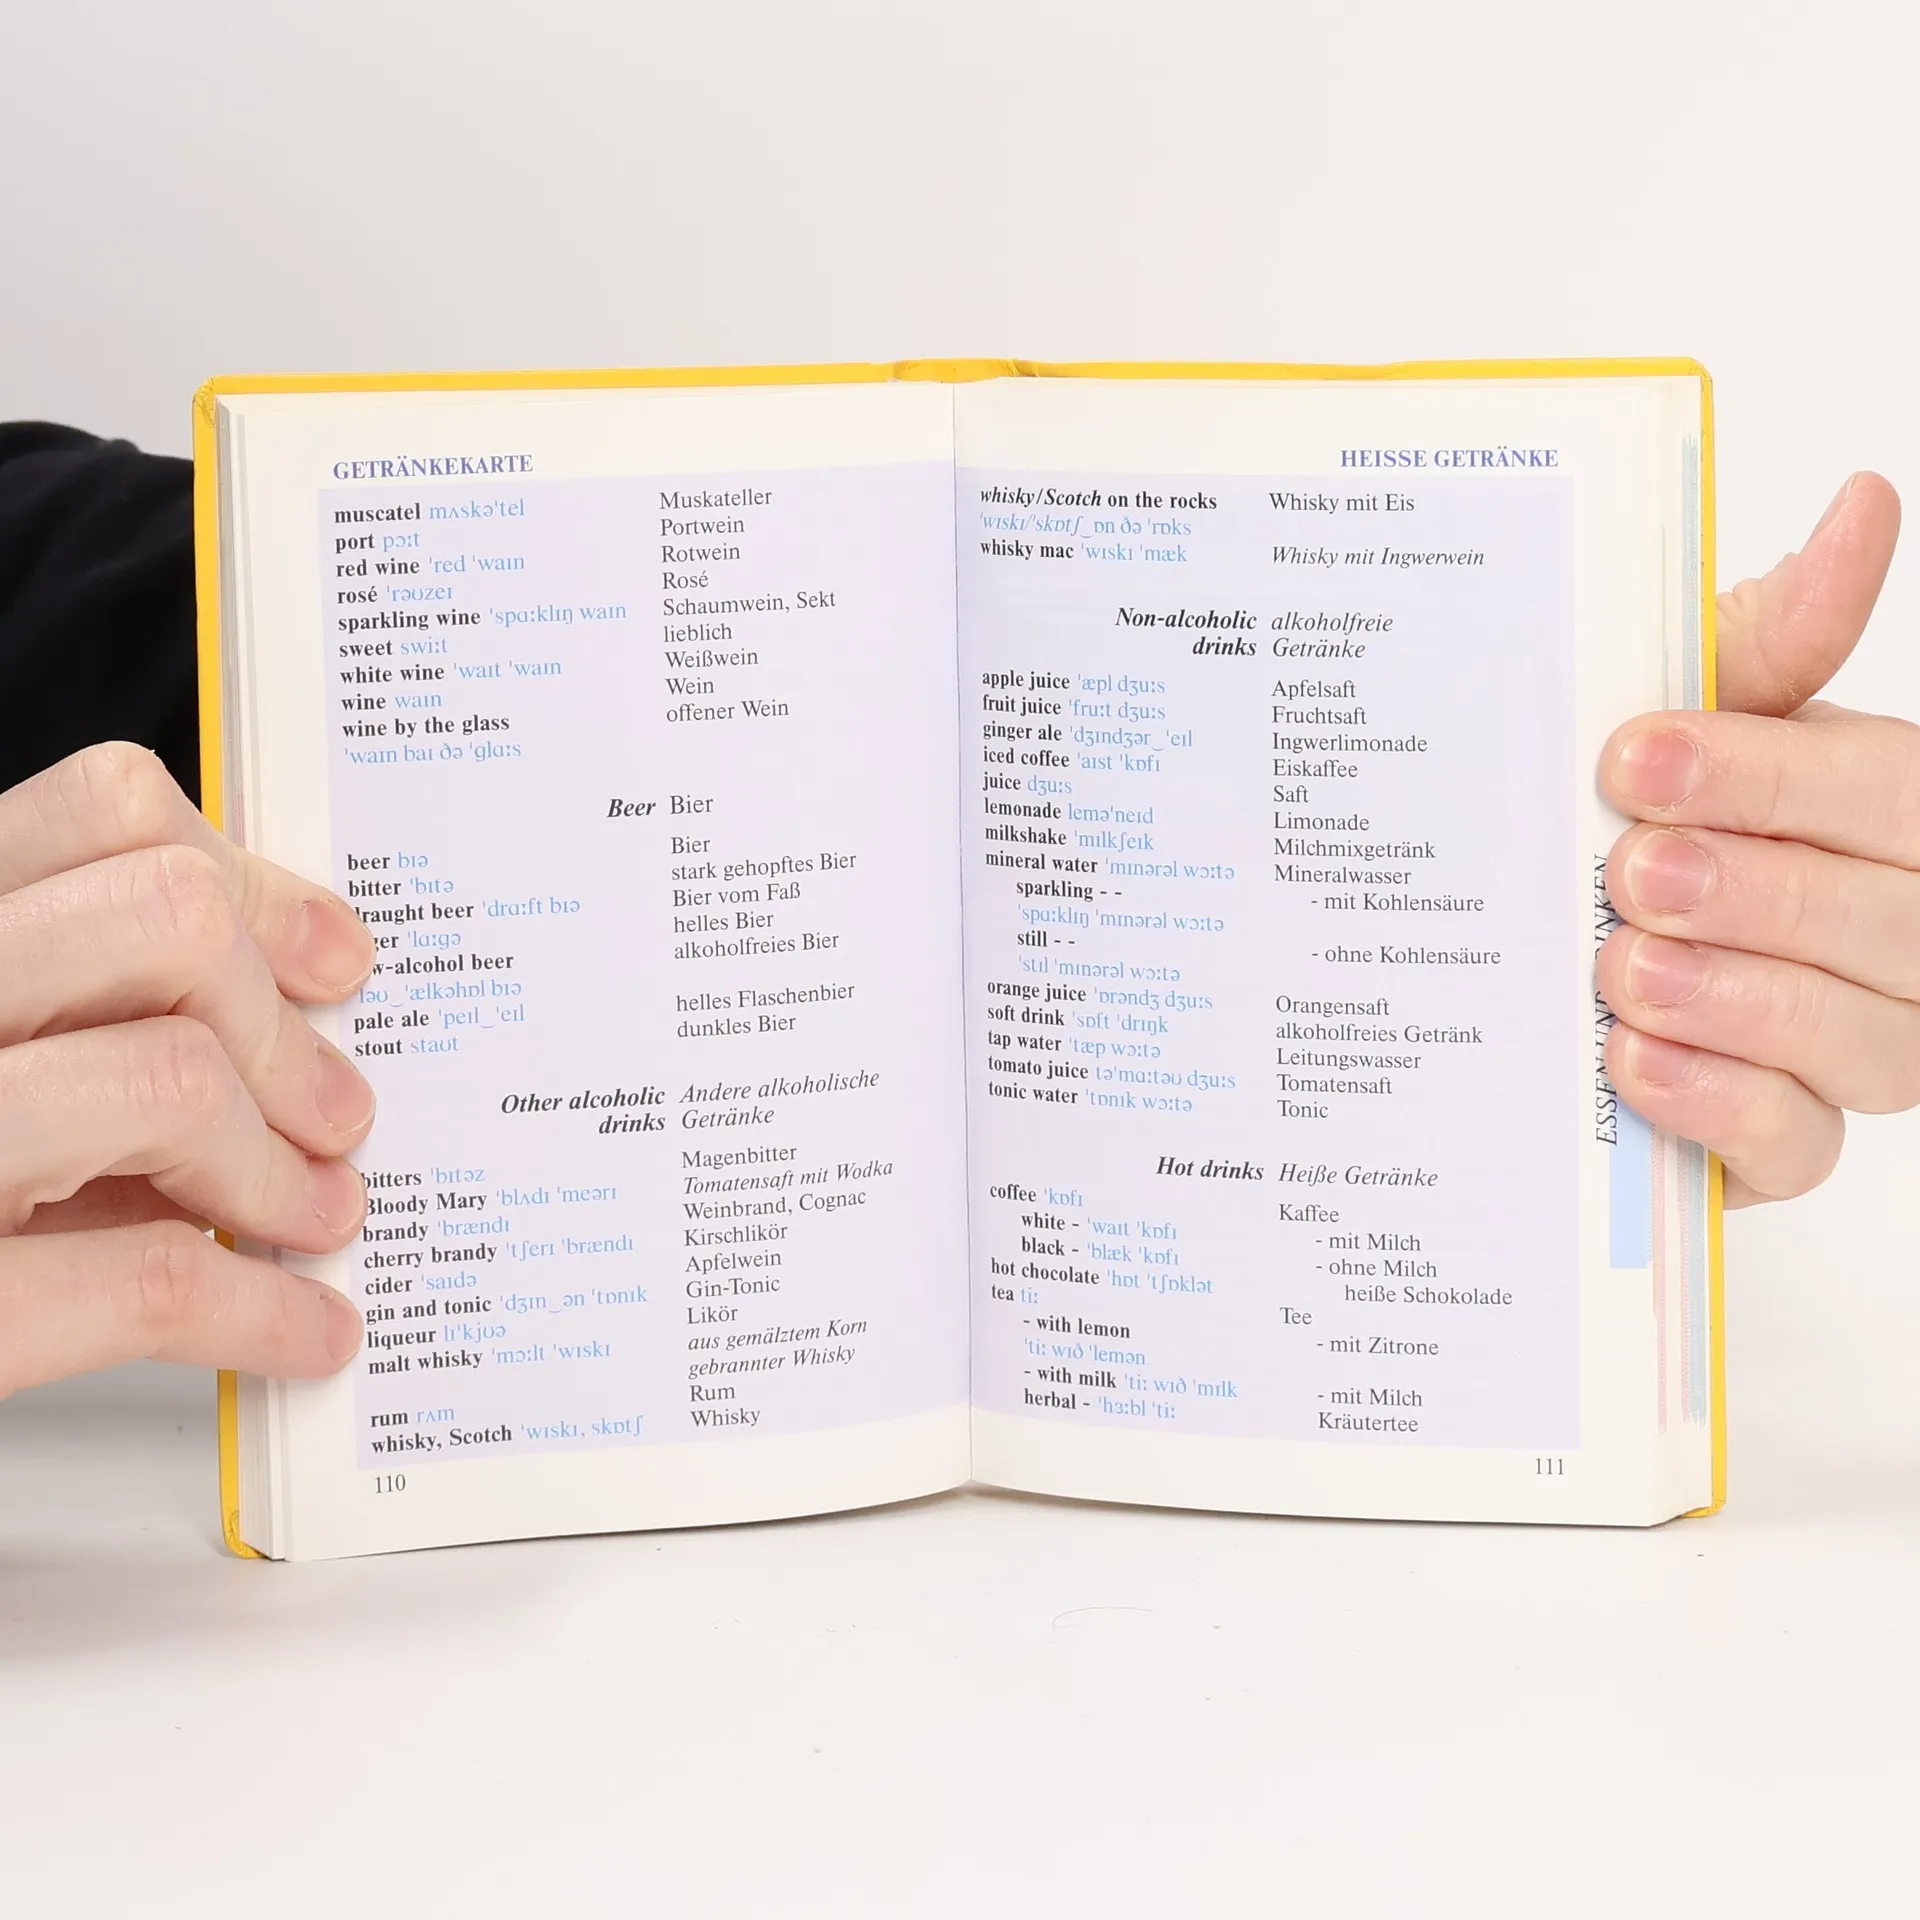 GETRÄNKEKARTE
muscatel mʌskə'tel Muskateller
port pɔːt Portwein
red wine 'red 'waɪn Rotwein
rosé 'rəʊzeɪ Rosé
sparkling wine 'spɑːklɪŋ waɪn Schaumwein, Sekt
sweet swiːt lieblich
white wine 'waɪt 'waɪn Weißwein
wine waɪn Wein
wine by the glass offener Wein
'waɪn baɪ ðə 'glɑːs
Beer Bier
beer bɪə Bier
bitter 'bɪtə stark gehopftes Bier
draught beer 'drɑːft bɪə Bier vom Faß
'lɑːgə helles Bier
beer alkoholfreies Bier
ləʊ‿'ælkəhɒl bɪə
pale ale 'peɪl‿'eɪl helles Flaschenbier
stout staʊt dunkles Bier
Other alcoholic Andere alkoholische
drinks Getränke
bitters 'bɪtəz Magenbitter
Bloody Mary 'blʌdɪ 'meərɪ Tomatensaft mit Wodka
brandy 'brændɪ Weinbrand, Cognac
cherry brandy 'tʃerɪ 'brændɪ Kirschlikör
cider 'saɪdə Apfelwein
gin and tonic 'dʒɪn‿ən 'tɒnɪk Gin-Tonic
liqueur lɪ'kjʊə Likör
malt whisky 'mɔːlt 'wɪskɪ aus gemälztem Korn
gebrannter Whisky
rum rʌm Rum
whisky, Scotch 'wɪskɪ, skɒtʃ Whisky
110
HEISSE GETRÄNKE
whisky/Scotch on the rocks Whisky mit Eis
'wɪskɪ/'skɒtʃ‿ɒn ðə 'rɒks
whisky mac 'wɪskɪ 'mæk Whisky mit Ingwerwein
Non-alcoholic alkoholfreie
drinks Getränke
apple juice 'æpl dʒuːs Apfelsaft
fruit juice 'fruːt dʒuːs Fruchtsaft
ginger ale 'dʒɪndʒər‿'eɪl Ingwerlimonade
iced coffee 'aɪst 'kɒfɪ Eiskaffee
juice dʒuːs Saft
lemonade lemə'neɪd Limonade
milkshake 'mɪlkʃeɪk Milchmixgetränk
mineral water 'mɪnərəl wɔːtə Mineralwasser
sparkling - - - mit Kohlensäure
'spɑːklɪŋ 'mɪnərəl wɔːtə
still - - - ohne Kohlensäure
'stɪl 'mɪnərəl wɔːtə
orange juice 'ɒrəndʒ dʒuːs Orangensaft
soft drink 'sɒft 'drɪŋk alkoholfreies Getränk
tap water 'tæp wɔːtə Leitungswasser
tomato juice tə'mɑːtəʊ dʒuːs Tomatensaft
tonic water 'tɒnɪk wɔːtə Tonic
Hot drinks Heiße Getränke
coffee 'kɒfɪ Kaffee
white - 'waɪt 'kɒfɪ - mit Milch
black - 'blæk 'kɒfɪ - ohne Milch
hot chocolate 'hɒt 'tʃɒklət heiße Schokolade
tea tiː Tee
- with lemon - mit Zitrone
'tiː wɪð 'lemən
- with milk 'tiː wɪð 'mɪlk - mit Milch
herbal - 'hɜːbl 'tiː Kräutertee
ESSEN UND
111